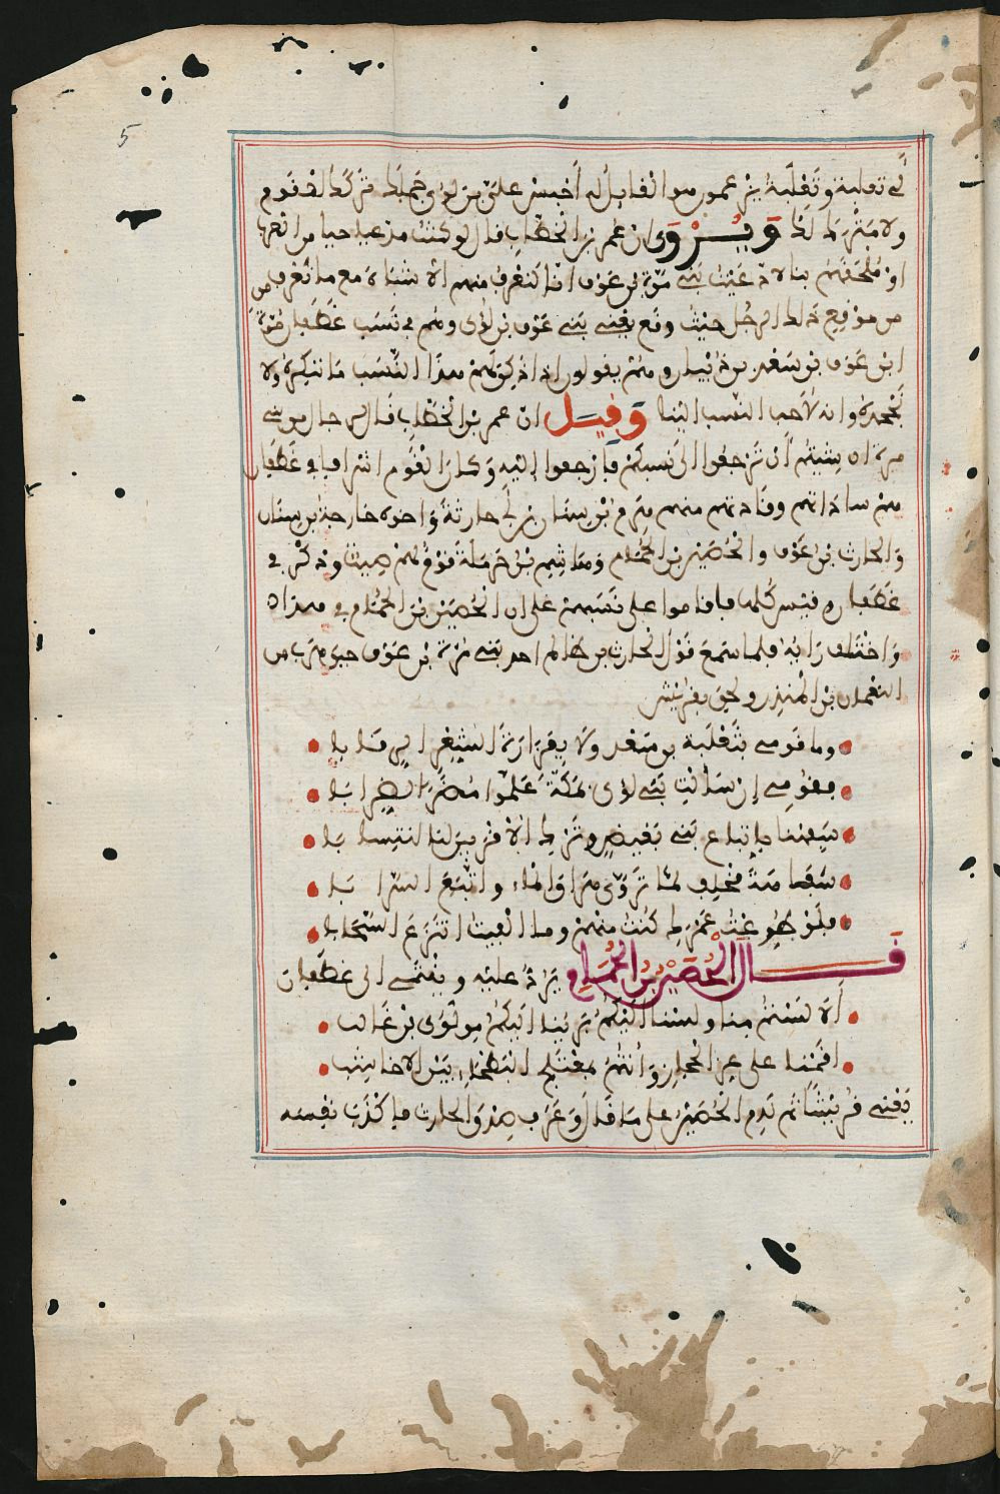 5
ابي ثعلبة وثعلبة بن عمرو هو القايل له احبس على بن لوى جملك تركك القوم
ولا مترك لك ويروى ان عمر بن الخطاب قال لو كنت مدعيا حيا من العرب
او ملحقهم بنا لادعيت بني مرة بن عوف انا لنعرف منهم الاشباه مع ما نعرف من
من موقع ذلك الرجل حيث وقع يعني بني عوف بن لؤي وهم في نسب غطفان مرة
ابن عوف بن سعد بن ذبيان وهم يقولون اذا ذكر لهم هذا النسب ما ننكره ولا
نجحده وانه لاحب النسب الينا وقيل ان عمر بن الخطاب قال لرجال من بني
مرة ان شيتم ان ترجعوا الى نسبكم فارجعوا اليه وكان القوم اشرافا في غطفان
هم ساداتهم وقادتهم منهم هرم بن سنان بن ابي حارثة واخوه خارجة بن سنان
والحارث بن عوف والحصين بن الحمام وهاشم بن حرملة قوم لهم صيت وذكر في
غطفان وقيس كلها فاقاموا على نسبهم على ان الحصين بن الحمام في هذا
واختلف رايه فلما سمع قول الحارث بن ظالم احد بني مرة بن عوف حين هرب من
النعمان بن المنذر ولحق بقريش
وما قومي بثعلبة بن سعد ولا بفزارة الشعر الرقابا
وقومي ان سالت بني لؤي بمكة علموا مضر الضرابا
سفهنا باتباع بني بغيض وترك الاقربين لنا انتسابا
سفاهة مخلف لما تروى هراق الماء واتبع السرابا
فلو طووعت عمرك كنت منهم وما الفيت انتزع السحابا
قال الحصين بن الحمام يرد عليه وينتمي الى غطفان
الا لستم منا ولسنا اليكم برينا اليكم من لؤي بن غالب
اقمنا على عز الحجاز وانتم بمعتلج البطحاء بين الاخاشب
يعني قريشا ثم ندم الحصين على ما قال وعرف صدق الحارث فاكذب نفسه